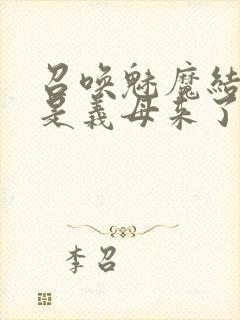 召唤魅魔结
是义母来了
李召